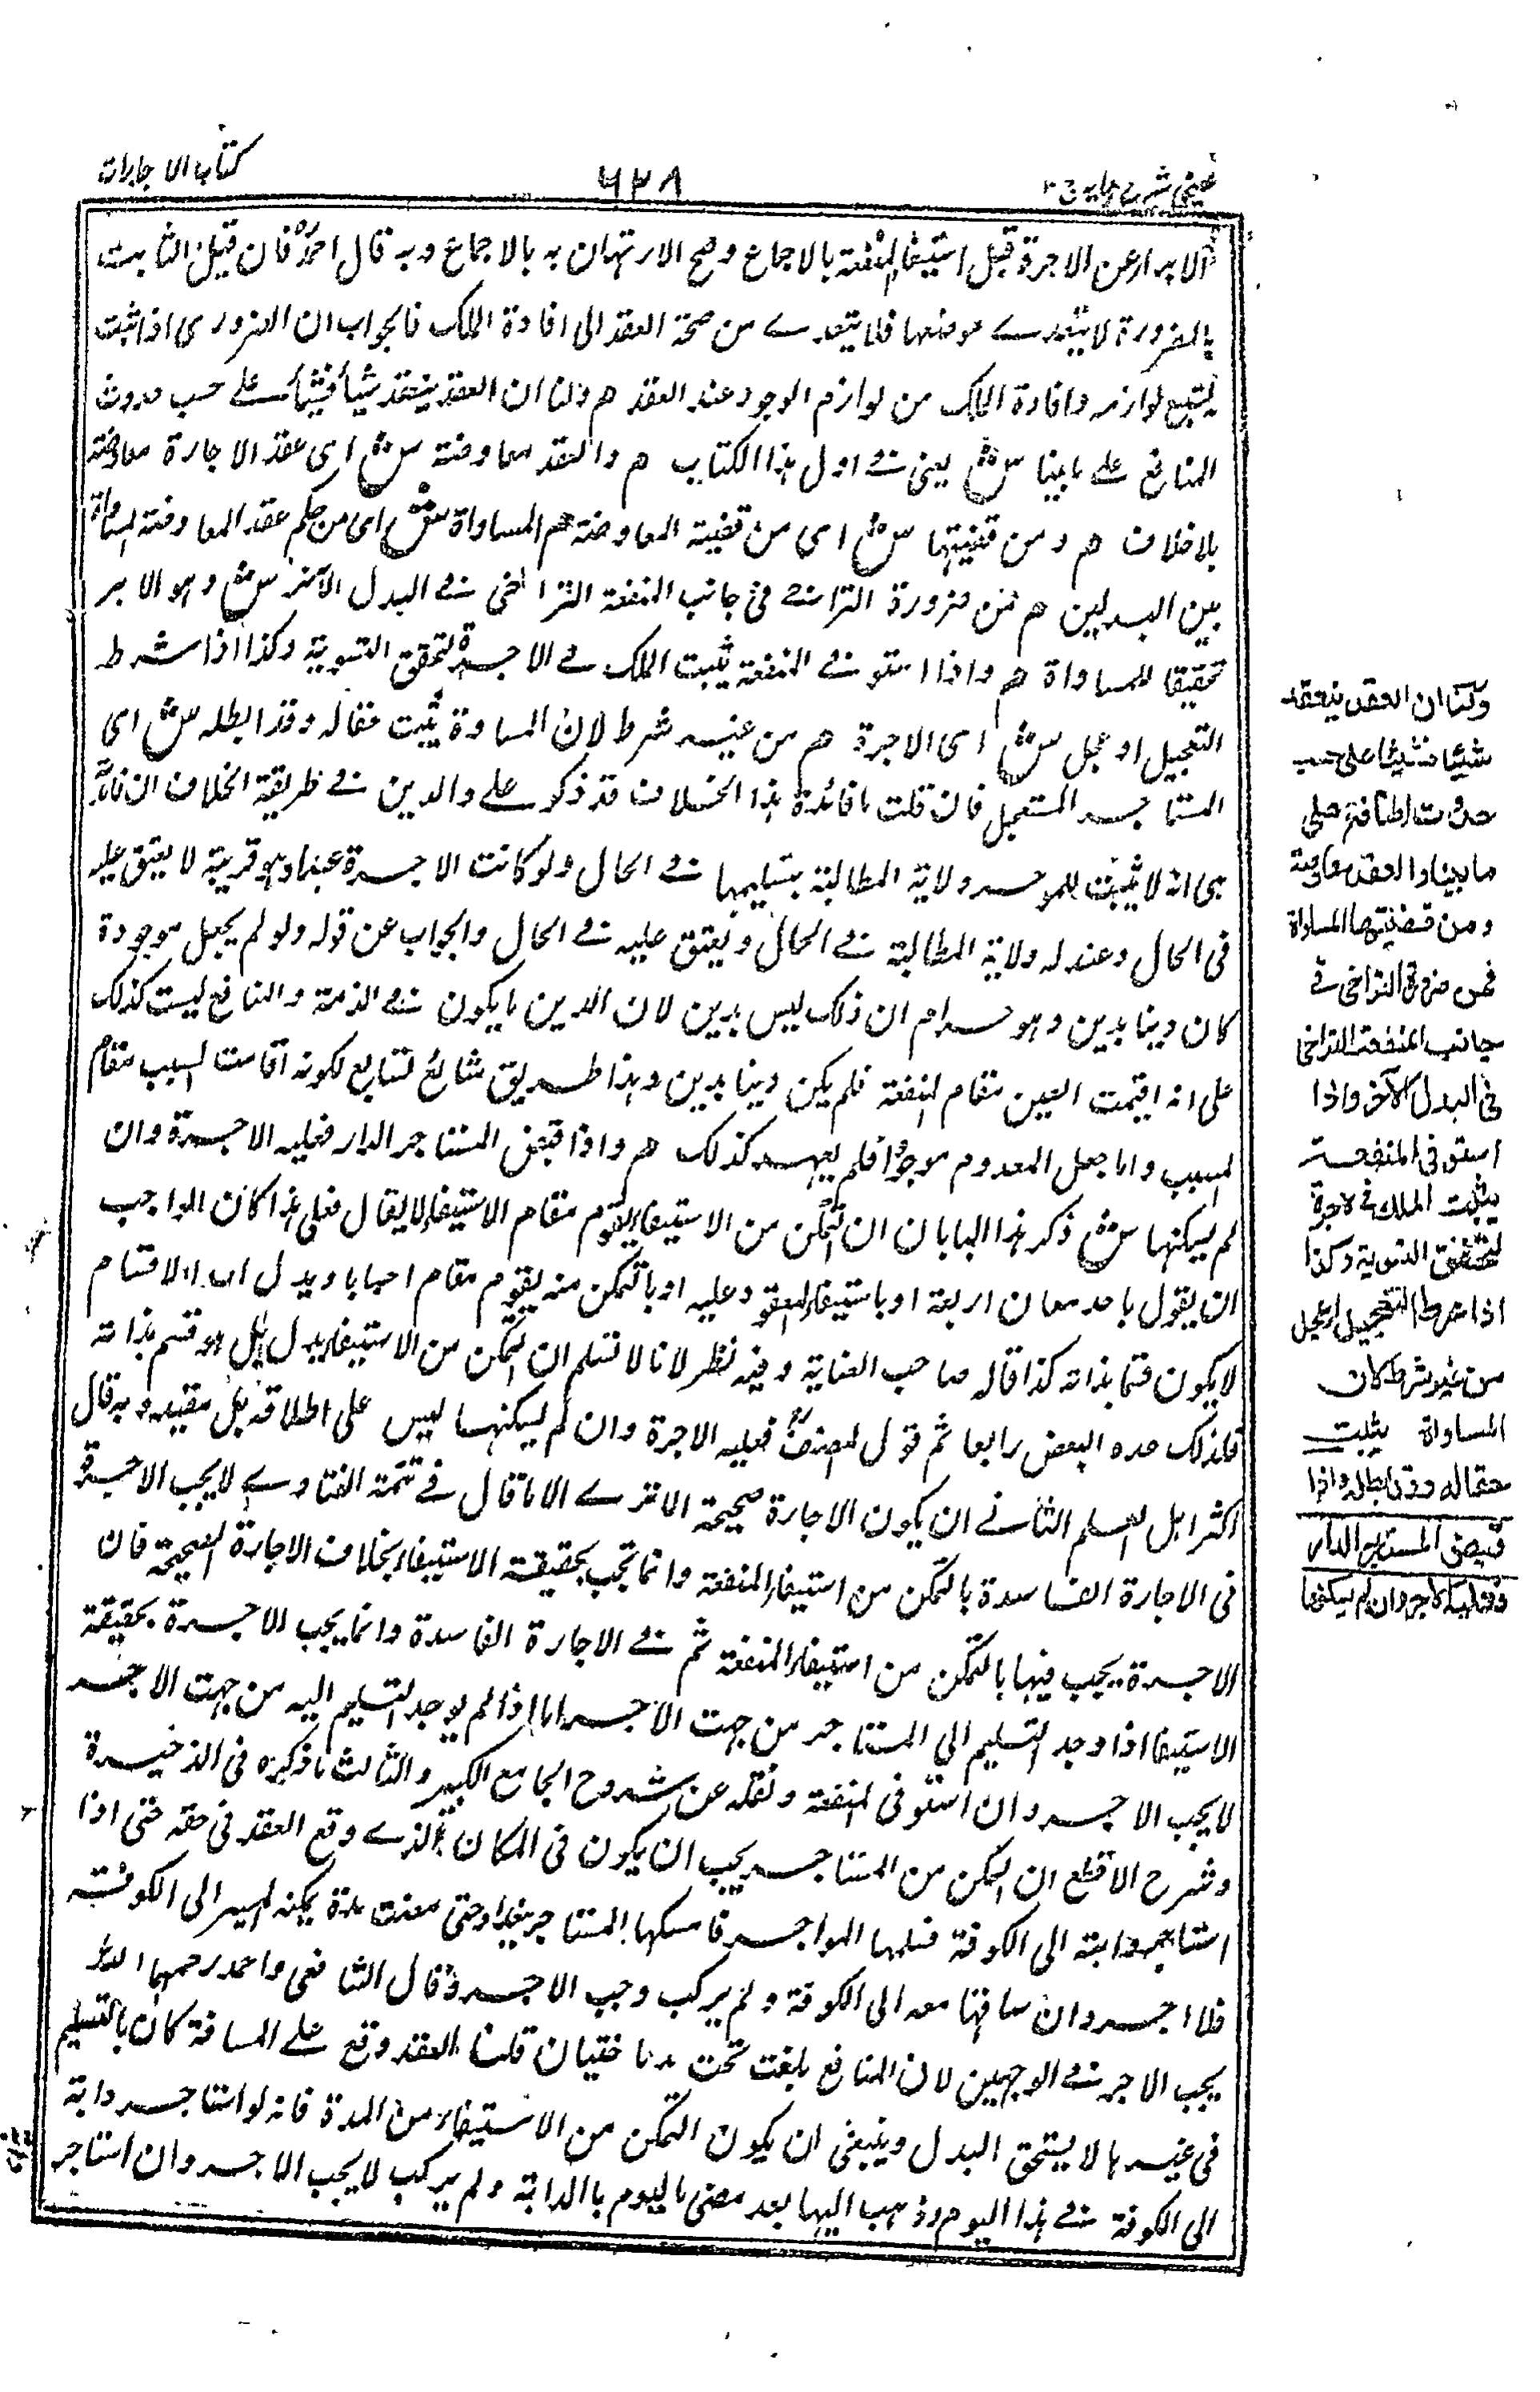 عینی شرح ہدایہ ج ۳
۶۳۸
کتاب الاجارات
الابراء عن الاجرة قبل استیفاء المنفعة بالاجماع وصح الارتہان بہ بالاجماع وبہ قال احمدؒ فان قیل الثابت
بالضرورة لا یتعدے موضعہا فلا یتعدے من صحة العقد الی افادة الملک فالجواب ان الضروری اذا ثبت
یستتبع لوازمہ وافادة الملک من لوازم الوجود عند العقد ھم ولنا ان العقد ینعقد شیأ فشیأ علے حسب حدوث
المنافع علے ما بینا س ش یعنی نے اول ہذا الکتاب ھم والعقد معاوضة س ش ای عقد الاجارة معاوضة
بلا خلاف ھم ومن قضیتہا س ش ای من قضیة المعاوضة ھم المساواة س ش ای من حکم عقد المعاوضة المساواة
بین البدلین ھم فمن ضرورة التراخے فی جانب المنفعة التراخی نے البدل الآخر س ش وہو الاجر
تحقیقا للمساواة ھم واذا استوفے المنفعة یثبت الملک نے الاجرة لتحقق التسویة وکذا اذا شرط
التعجیل او عجل س ش ای الاجرة ھم من غیر شرط لان المساوة یثبت حقا لہ وقد ابطلہ س ش ای
المستاجر المستعجل فان قلت ما فائدة ہذا الخلاف قد ذکر علے والدین نے طریقة الخلاف ان فائدتہ
ہی انہ لا یثبت للموجر ولایة المطالبة بتسلیمہا نے الحال ولو کانت الاجرة عبدا وہو قریبہ لا یعتق علیہ
فی الحال وعندہ لہ ولایة المطالبة نے الحال ویعتق علیہ نے الحال والجواب عن قولہ ولو لم یجعل موجودة
کان دینا بدین وہو حرام ان ذلک لیس بدین لان الدین ما یکون نے الذمة والمنافع لیست کذلک
علی انہ اقیمت العین مقام المنفعة فلم یکن دینا بدین وہذا طریق شائع لکونہ اقامت السبب مقام
المسبب واما جعل المعدوم موجودا فلم یعہد کذلک ھم واذا قبض المستاجر الدار فعلیہ الاجرة وان
لم یسکنہا س ش ذکر ہذا لبیان ان التمکن من الاستیفاء یقوم مقام الاستیفاء لا یقال فعلی ہذا کان الواجب
ان یقول باحد معان اربعة او باستیفاء المعقود علیہ او بالتمکن منہ یقوم مقام احدہا وبدل احد الاقسام
لا یکون قسما بذاتہ کذا قالہ صاحب العنایة وفیہ نظر لانا لا نسلم ان التمکن من الاستیفاء بدل بل ہو قسم بذاتہ
فلذلک عدہ البعض رابعا ثم قول المصنفؒ فعلیہ الاجرة وان لم یسکنہا لیس علی اطلاقہ بل مقید وبہ قال
اکثر اہل العلم الثانے ان یکون الاجارة صحیحة الا ترے الا ما قال فے تتمة الفتاوے لا یجب الاجرة
فی الاجارة الفاسدة بالتمکن من استیفاء المنفعة وانما تجب بحقیقة الاستیفاء بخلاف الاجارة الصحیحة فان
الاجرة یجب فیہا بالتمکن من استیفاء المنفعة ثم نے الاجارة الفاسدة وانما یجب الاجرة بحقیقة
الاستیفاء اذا وجد التسلیم الی المستاجر من جہت الآجر اما اذا لم یوجد التسلیم الیہ من جہت الآجر
لا یجب الاجر وان استوفی المنفعة ونقلہ عن شروح الجامع الکبیر والثالث ما ذکرہ فی الذخیرة
وشرح الاقطع ان التمکن من المستاجر یجب ان یکون فی المکان الذے وقع العقد فی حقہ حتی اذا
استاجر دابتہ الی الکوفة فسلمہا المواجر فامسکہا المستاجر ببغداد حتی مضت مدة یمکنہ المسیر الی الکوفة
فلا اجر وان ساقہا معہ الی الکوفة ولم یرکب وجب الاجر وقال الشافعی واحمد رحمہما اللہ
یجب الاجر نے الوجہین لان المنافع بلغت تحت یدہا قلنا العقد وقع علے المسافة کان بالتسلیم
فی غیرہا لا یستحق البدل وینبغی ان یکون التمکن من الاستیفاء من المدة فانہ لو استاجر دابة
الی الکوفة نے ہذا الیوم وذہب الیہا بعد مضی الیوم بالدابة ولم یرکب لا یجب الاجر وان استاجر
ولنا ان العقد ینعقد
شیئا فشیئا علی حسب
حدوث المنافع علی
ما بینا والعقد معاوضة
ومن قضیتہا المساواة
فمن ضرورة التراخی فے
جانب المنفعة التراخی
فی البدل الآخر واذا
استوفی المنفعة
یثبت الملک فے الاجرة
لتحقق التسویة وکذا
اذا شرط التعجیل او عجل
من غیر شرط لان
المساواة یثبت
حقا لہ وقد ابطلہ واذا
قبض المستاجر الدار
فعلیہ الاجر وان لم یسکنہا